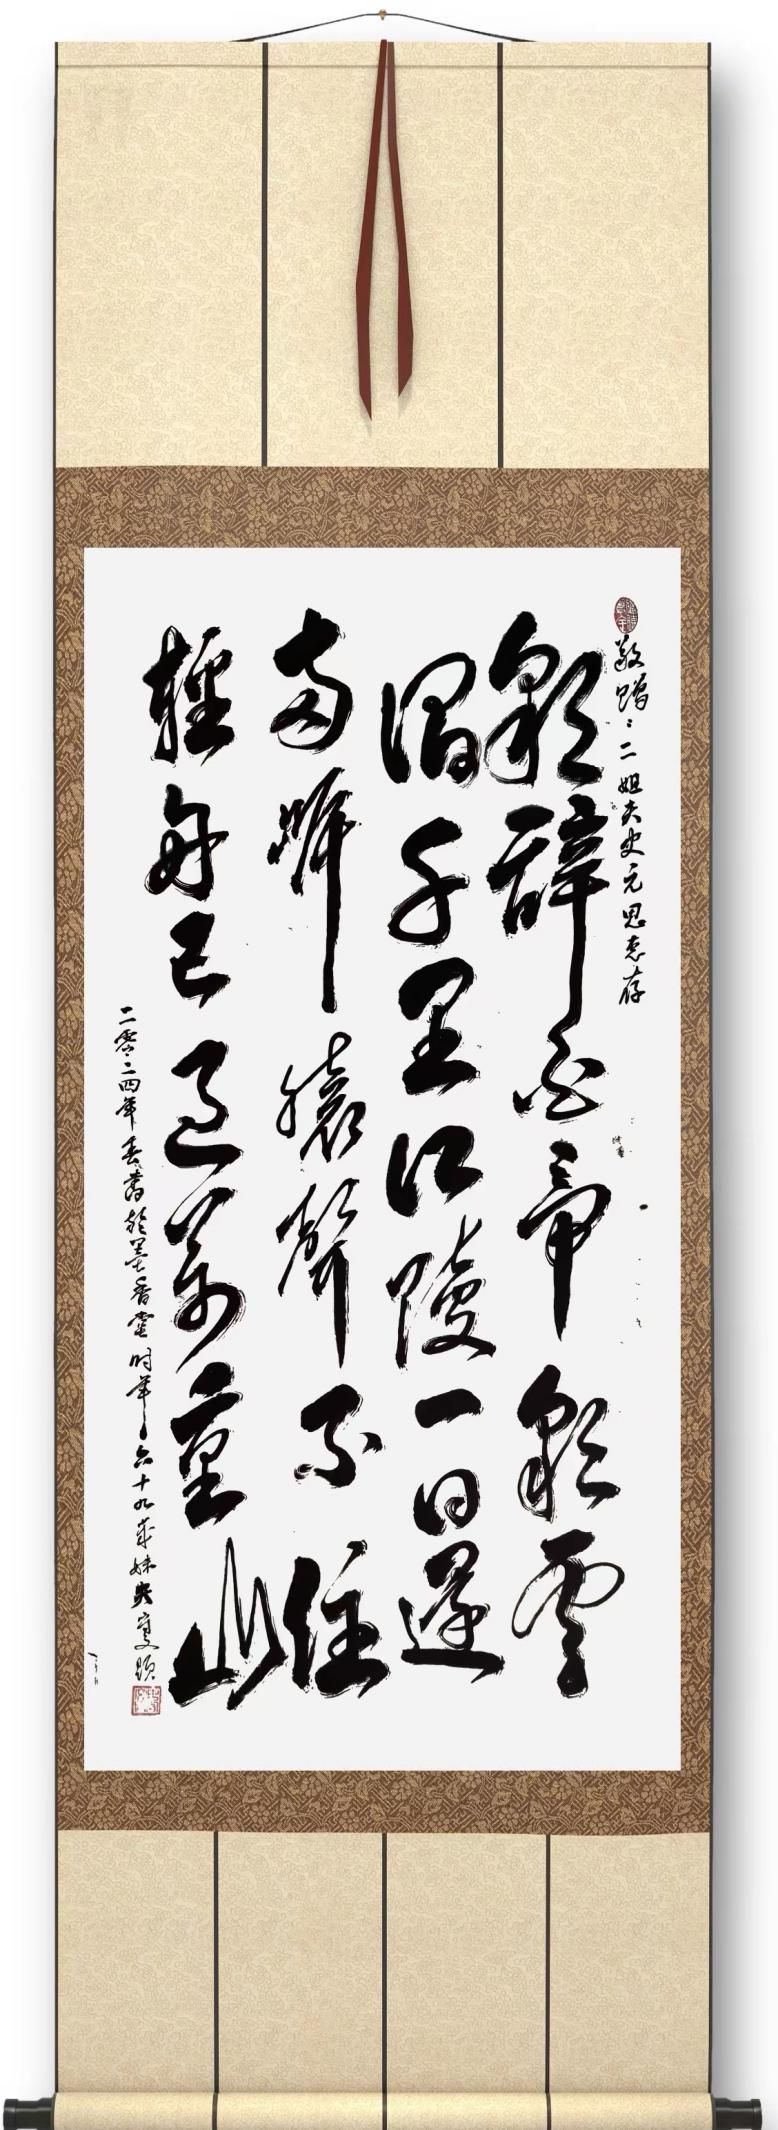 敬赠：二姐夫史元思惠存
朝辭白帝彩雲
間千里江陵一日還
兩岸猿聲不住
輕舟已過萬重山
二零二四年春書於墨香堂时年六十九歲妹夫